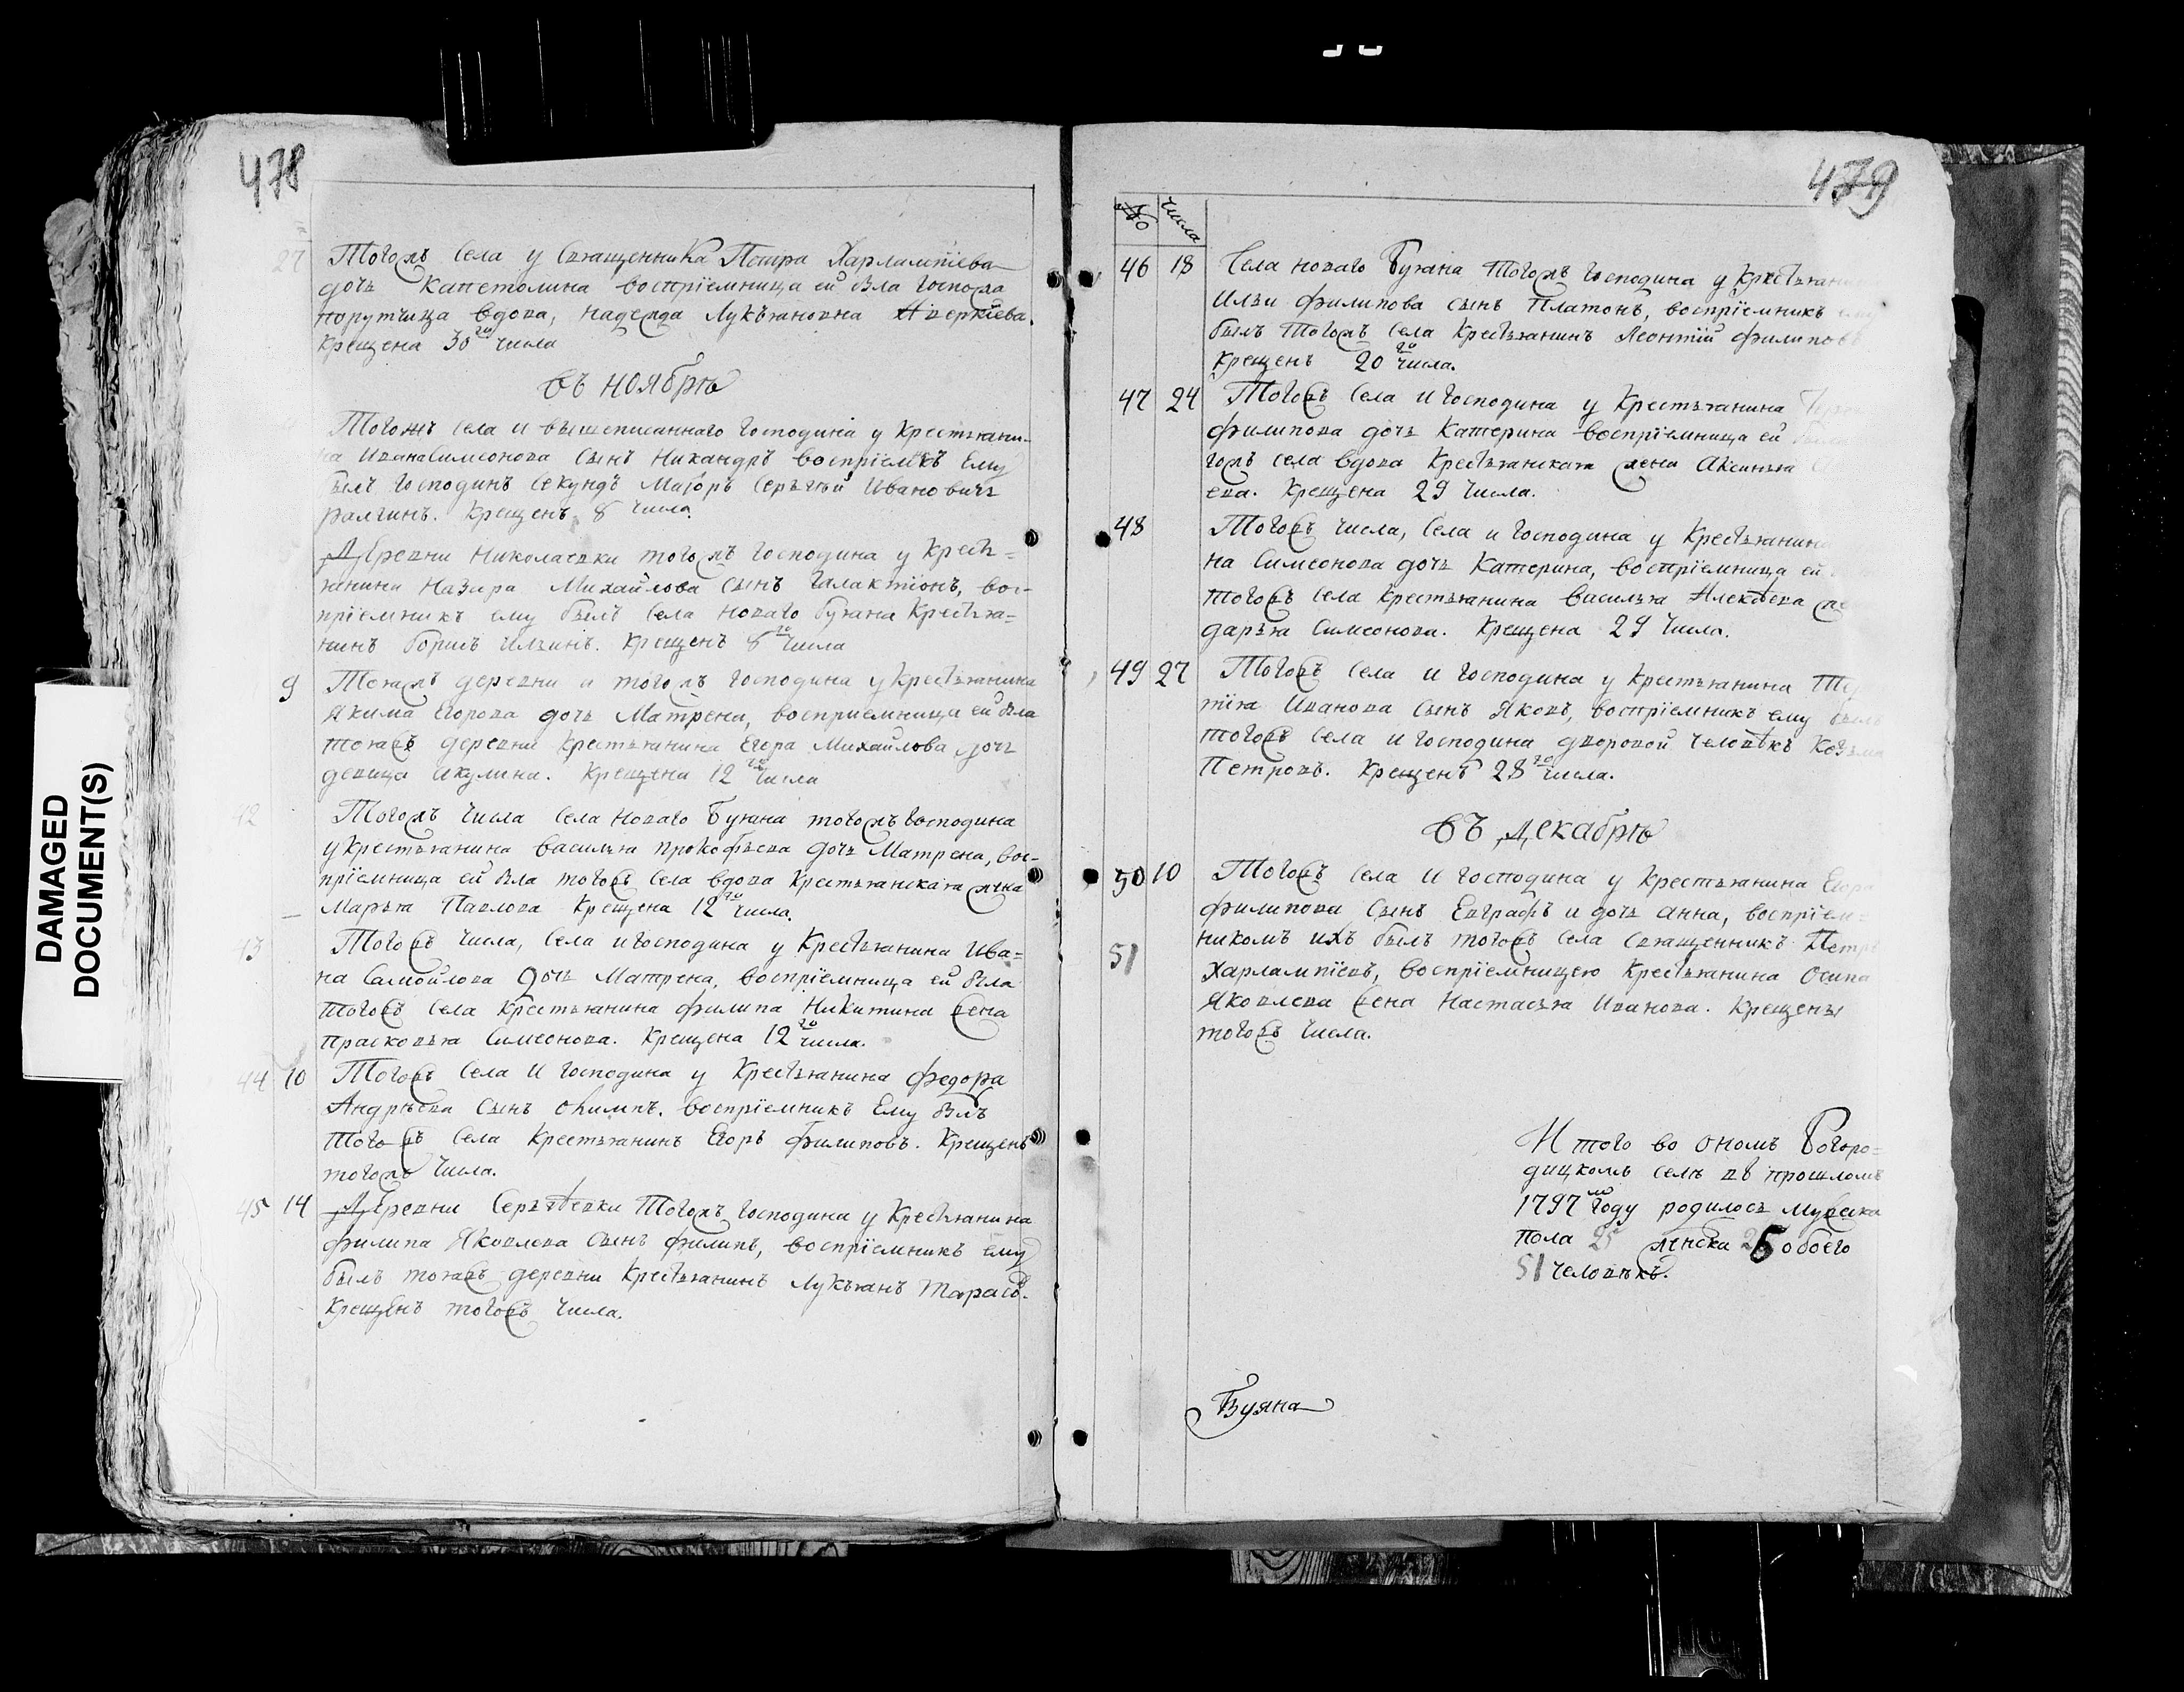 478
27 Тогожъ села у священника Петра Харлампïева
дочь Капетолина воспрïемница ей была госпожа
порутчица вдова, надежда Лукьяновна Аверкïева.
крещена 30 го числа
въ ноябрѣ
Тогожъ села и вышеписаннаго господина у крестьяни-
на Ивана Симеонова сынъ Никандръ воспрïемкъ ему
былъ господинъ секундъ Маïоръ Серьгѣй Ивановичь
крещенъ 8 числа
Деревни Николаевки тогожъ господина у кресть=
янина Назара Михайлова сынъ Галактïонъ, вос-
прïемникъ ему былъ села новаго буяна крестья=
нинъ борисъ Ильинъ. крещенъ 8 го числа
9 Тояжъ деревни и тогожъ господина у крестьянина
Якима Егорова дочь Матрена, восприемница ей была
тояжъ деревни крестьянина Егора Михайлова дочь
девица Акулина. крещена 12 го числа
42 Тогожъ числа села новаго Буяна тогожъ господина
у крестьянина василья прокофьева дочь Матрена, вос-
прïемница ей была тогожъ села вдова крестьянская жена
Марья Павлова крещена 12 го числа.
43 Тогожъ числа, села и господина у крестьянина Ива=
на Самойлова дочь Матрена, воспрïемница ей была
тогожъ села крестьянина филипа Никитина жена
прасковья Симеонова. крещена 12 го числа.
44 10 Тогожъ села и господина у крестьянина федора
Андрѣева сынъ Олимпъ. воспрïемникъ ему былъ
тогожъ села крестьянинъ Егоръ филиповъ. крещенъ
тогожъ числа.
45 14 Деревни Серьгѣевки тогожъ господина у крестьянина
филипа Яковлева сынъ филипъ, воспрïемникъ ему
былъ тояжъ деревни крестьянинъ Лукьянъ Тарасо.
крещенъ тогожъ числа.
479
№ числа
46 18 Села новаго Буяна тогожъ господина у крестьянин
Ильи филипова сынъ Платонъ, воспрïемникъ ему
былъ тогожъ села крестьянинъ Леонтïй филиповъ
крещенъ 20 го числа.
47 24 Тогожъ села и господина у крестьянина
филипова дочь Катерина воспрïемница ей была
гожъ села вдова крестьянская жена Аксинья
ева. крещена 29 числа.
48 Тогожъ числа, села и господина у крестьянина
на Симеонова дочь Катерина, воспрïемница ей
тогожъ села крестьянина василья Алексѣева же
дарья Симеонова. крещена 29 числа.
49 27 Тогожъ села и господина у крестьянина Те
тïя Иванова сынъ Яковъ, воспрïемникъ ему былъ
тогожъ села и господина дворовой человѣкъ Козьма
Петровъ. крещенъ 28 го числа.
въ декабрѣ
50 10 Тогожъ села и господина у крестьянина Егора
филипова сынъ Евграфъ и дочь анна, воспрïем=
51 никомъ ихъ былъ тогожъ села священникъ Петръ
Харлампïевъ, воспрïемницею крестьянина Осипа
Яковлева жена Настасья Иванова. крещены
тогожъ числа.
Итого во ономъ Богоро=
дицкомъ селѣ въ прошломъ
1797 мъ году родилось мужска
пола 25 женска 26 обоего
51 человѣкъ.
Буяна
DAMAGED
DOCUMENT(S)